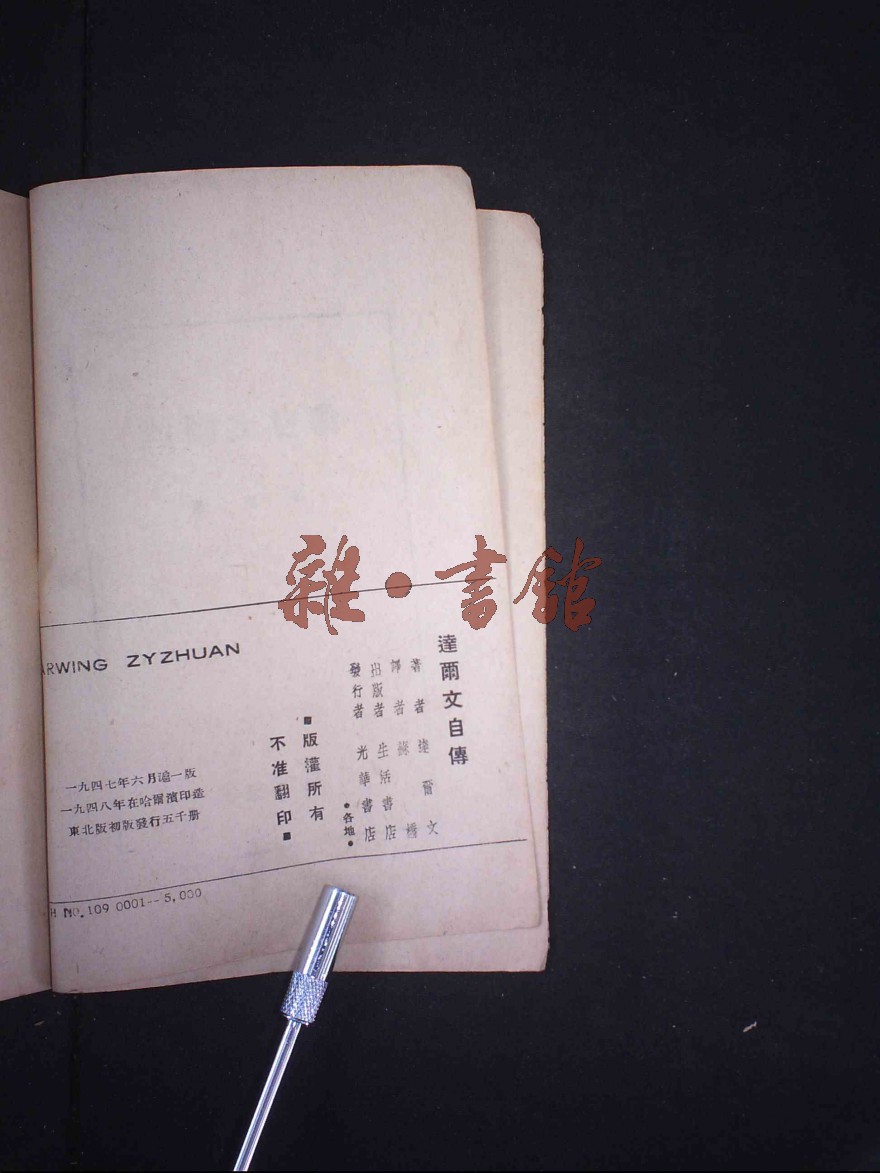 雜·書館
達爾文自傳
著者 達爾文
譯者 蘇橋
出版者 生活書店
發行者 光華書店
●各地●
■版權所有
不准翻印■
ARWING ZYZHUAN
一九四七年六月滬一版
一九四八年在哈爾濱印造
東北版初版發行五千册
H NO.109 0001--5,000